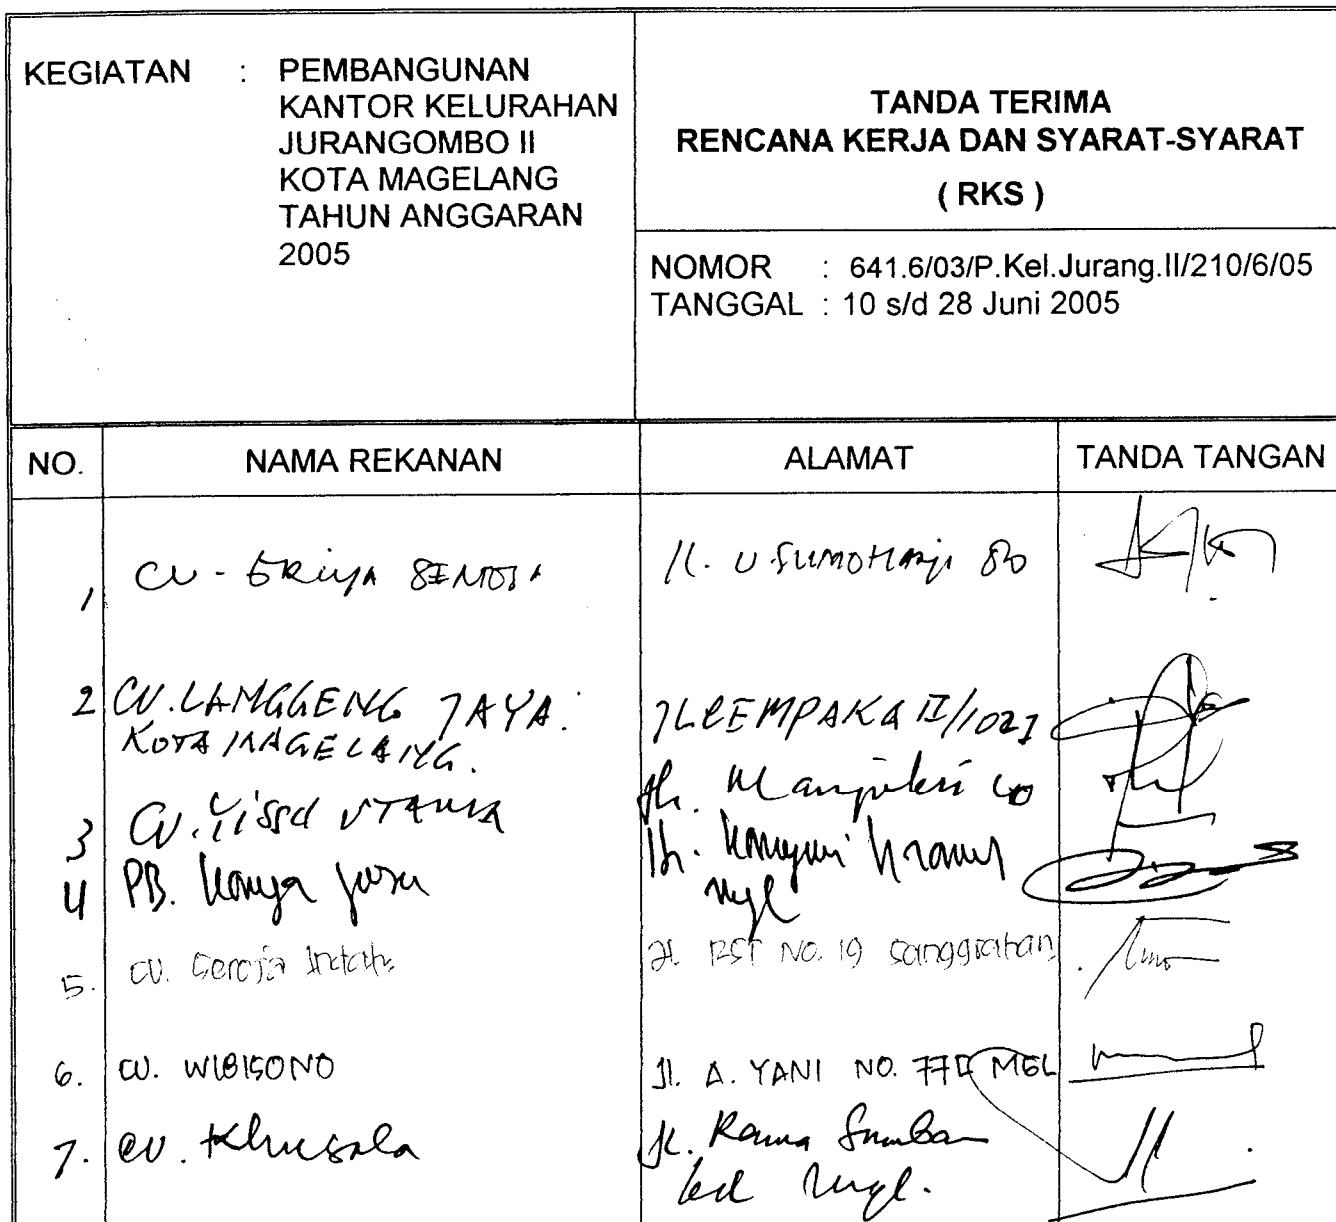 KEGIATAN : PEMBANGUNAN
KANTOR KELURAHAN
JURANGOMBO II
KOTA MAGELANG
TAHUN ANGGARAN
2005
TANDA TERIMA
RENCANA KERJA DAN SYARAT-SYARAT
( RKS )
NOMOR : 641.6/03/P.Kel.Jurang.II/210/6/05
TANGGAL : 10 s/d 28 Juni 2005
NO. NAMA REKANAN ALAMAT TANDA TANGAN
1 CV - 80
2 CV. LANGGENG JAYA. JL CEMPAKA II/102
KOTA MAGELANG.
3 CV. UTAMA Jl.
4 PB. Karya Jl.
Mgl
5. CV. Seroja Indah Jl. RST NO. 19 Sanggrahan
6. CV. WIBISONO Jl. A. YANI NO. MGL
7. CV. Khusala Jl.
Mgl.